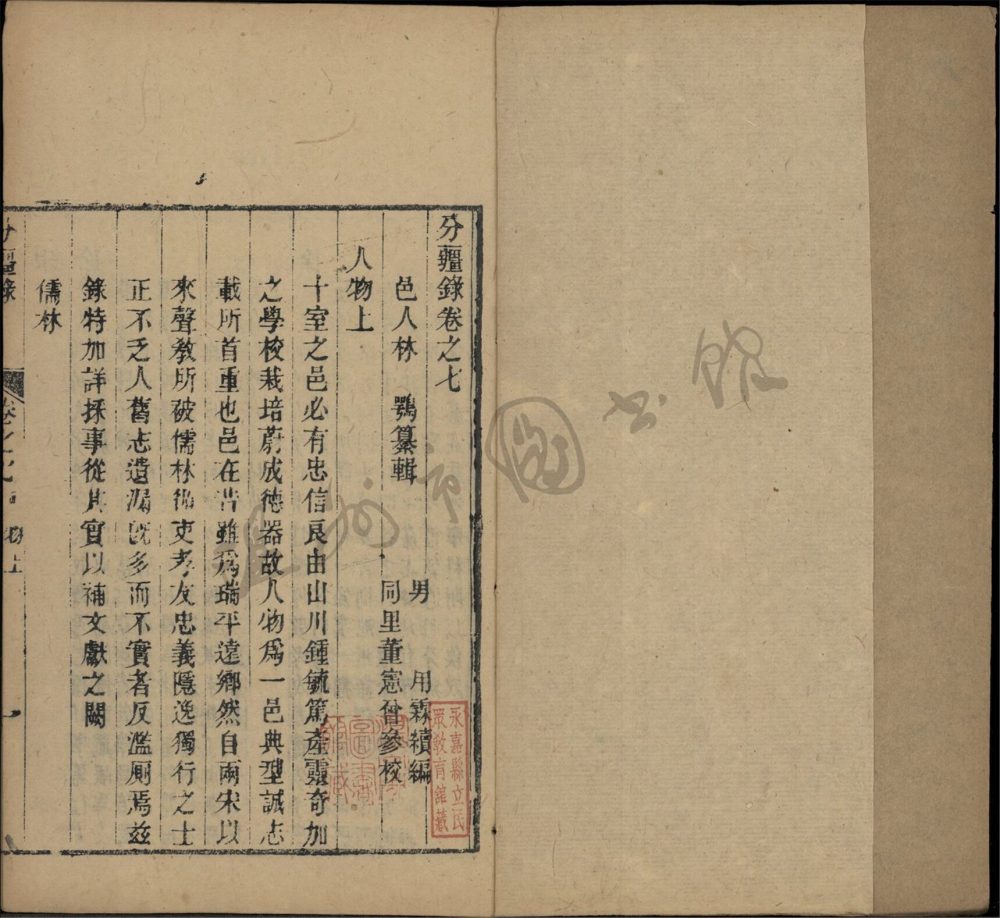 分疆錄卷之七
邑人林　鶚纂輯　男　用霖續編
同里董憲曾參校
人物上
十室之邑必有忠信良由山川鍾毓篤產靈奇加
之學校栽培蔚成德器故人物爲一邑典型誠志
載所首重也邑在昔雖爲瑞平遠鄉然自兩宋以
來聲敎所被儒林循吏孝友忠義隱逸獨行之士
正不乏人舊志遺漏旣多而不實者反濫厠焉茲
錄特加詳採事從其實以補文獻之闕
儒林
分疆錄　卷之七　人物上　一
永嘉縣立民
眾敎育館藏
溫州市圖書館